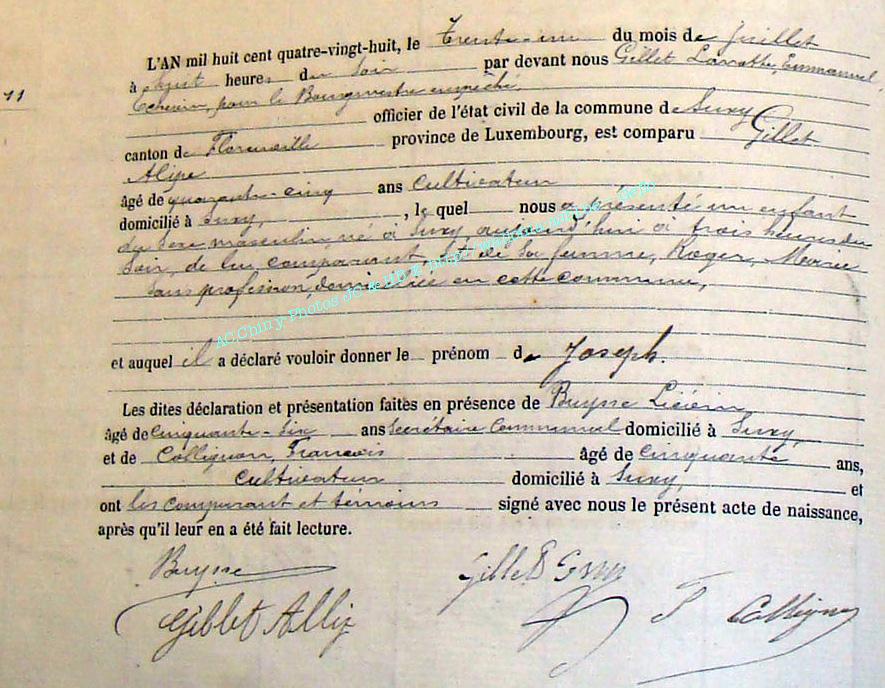 11
L'AN mil huit cent quatre-vingt-huit, le Trente-un du mois de Juillet
à sept heures du soir par devant nous Gillet Larotte, Emmanuel,
Echevin, pour le Bourgmestre empêché,
officier de l'état civil de la commune de Suxy
canton de Florenville province de Luxembourg, est comparu Gillet
Alipe
âgé de quarante-cinq ans Cultivateur
domicilié à Suxy, , le quel nous a présenté un enfant
du sexe masculin, né à Suxy, aujourd'hui à trois heures du
soir, de lui comparant, et de sa femme, Roger, Marie
sans profession, domiciliée en cette commune,
et auquel il a déclaré vouloir donner le prénom de Joseph.
Les dites déclaration et présentation faites en présence de Buysse
âgé de cinquante-six ans Secrétaire Communal domicilié à Suxy,
et de Collignon, François âgé de cinquante ans,
Cultivateur domicilié à Suxy, et
ont les comparant et témoins signé avec nous le présent acte de naissance,
après qu'il leur en a été fait lecture.
Buysse
Gillet
Gillet Allip
F Collignon
AC Chiny Photos JC &